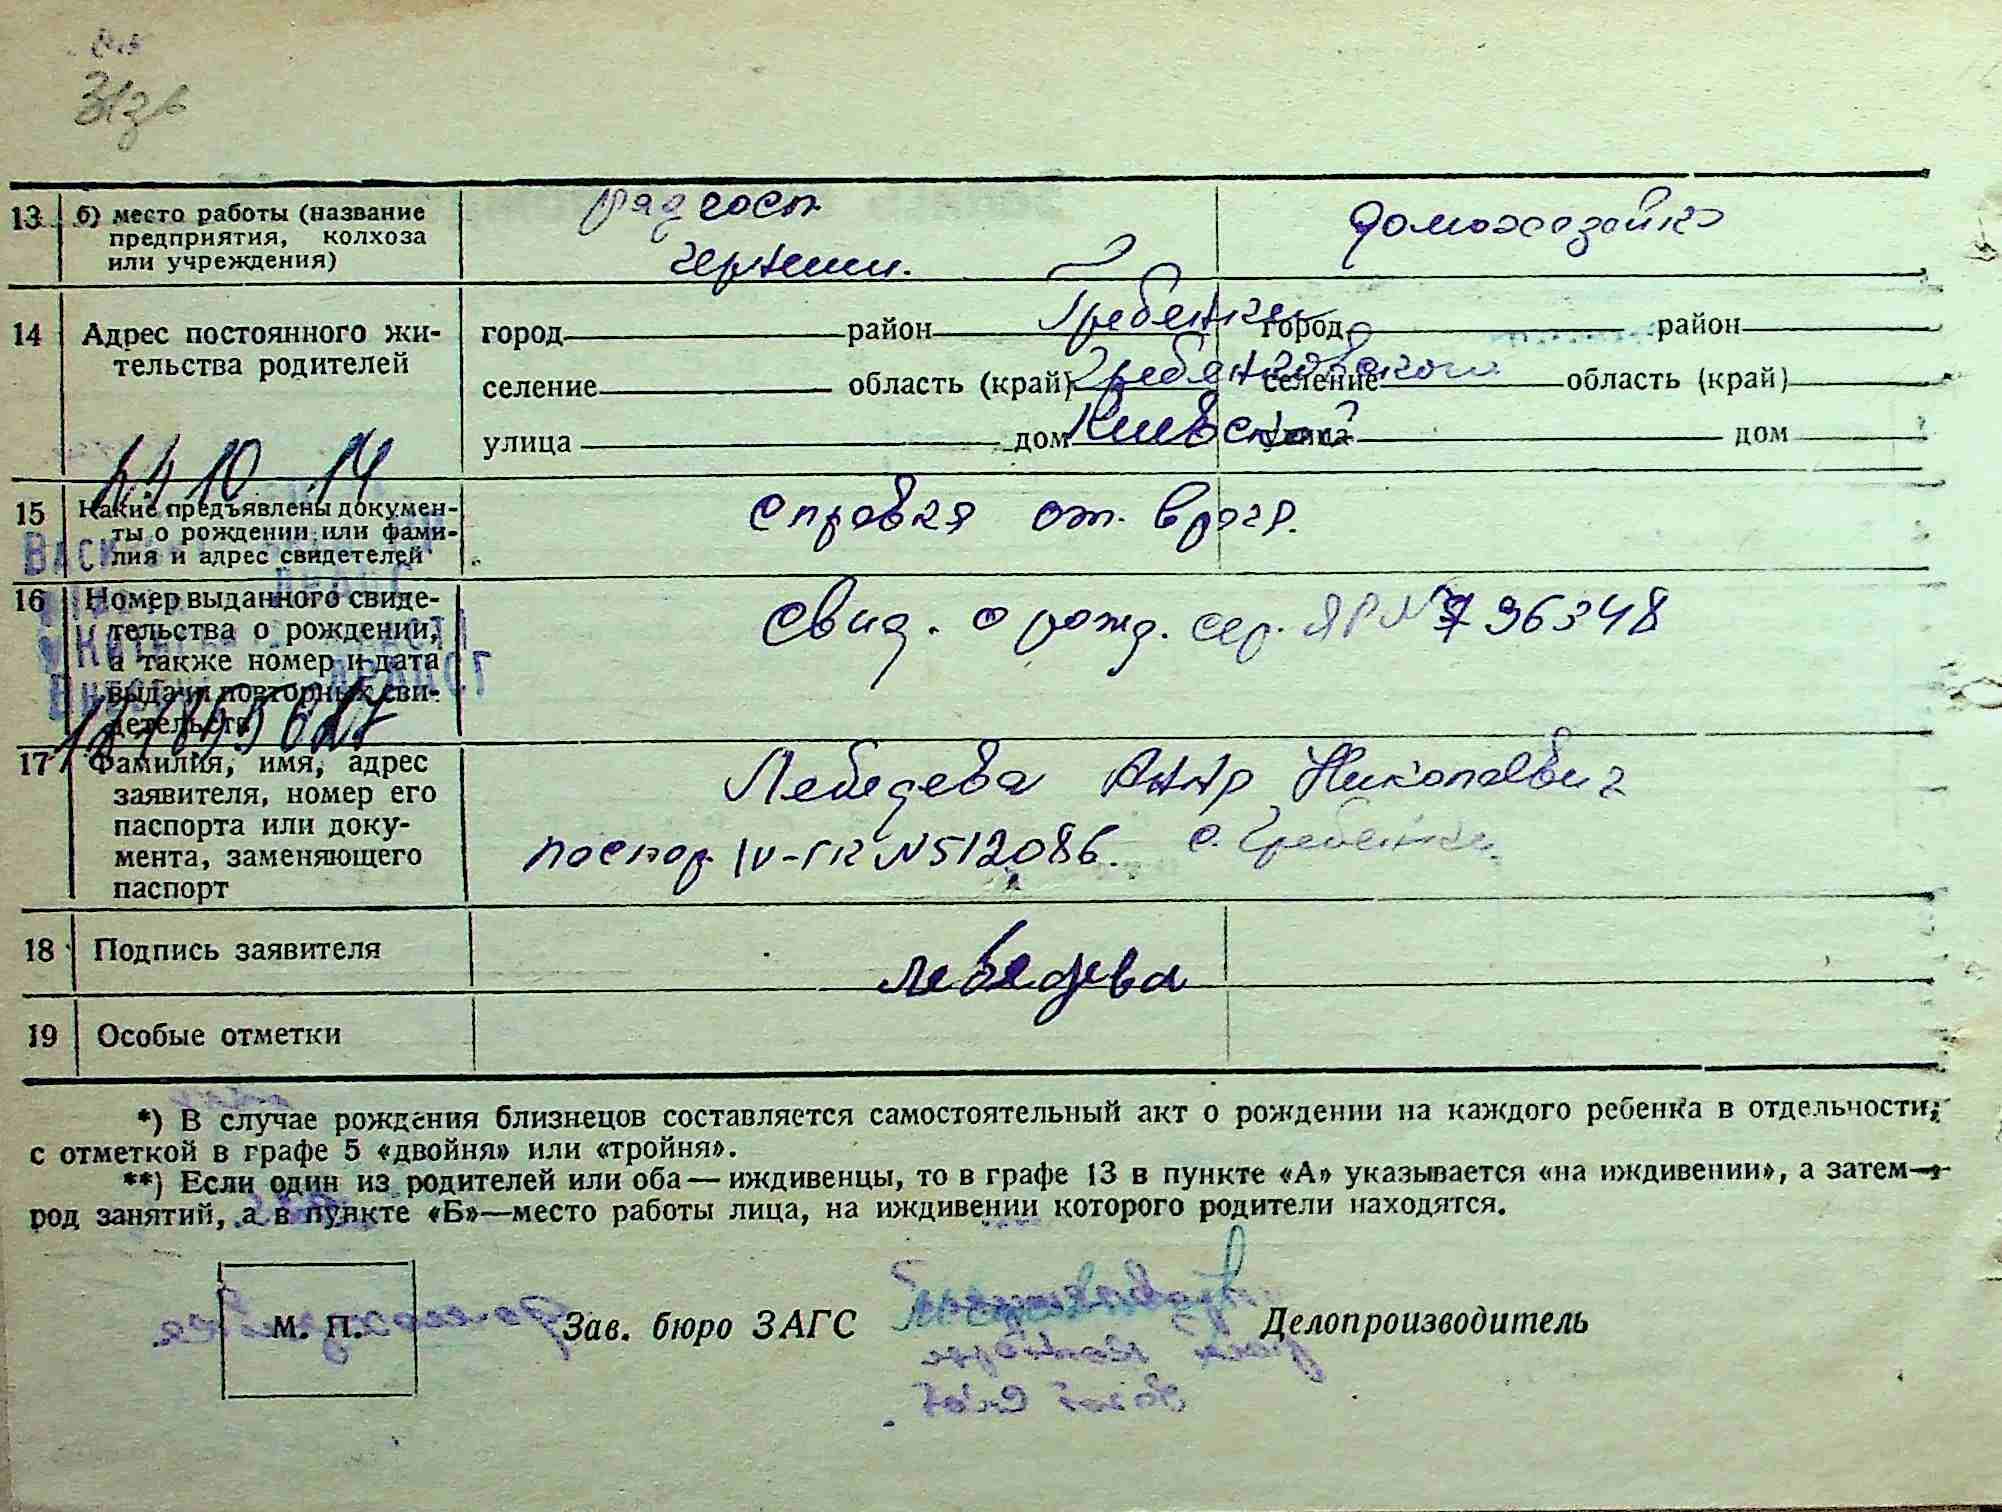 13 б) место работы (название
предприятия, колхоза
или учреждения)
домохозяйка
14 Адрес постоянного жи-
тельства родителей
город район Гребенки город район
селение область (край) Гребенковского селение область (край)
улица дом Киевской улица дом
15 Какие предъявлены докумен-
ты о рождении или фами-
лия и адрес свидетелей
справка от врача.
16 Номер выданного свиде-
тельства о рождении,
а также номер и дата
выдачи повторных сви-
детельств
свид. о рожд. сер. ЯР № 796348
17 Фамилия, имя, адрес
заявителя, номер его
паспорта или доку-
мента, заменяющего
паспорт
Лебедева Анна Николаевна
паспор. IV-ГК № 512086. с. Гребенки
18 Подпись заявителя
Лебедева
19 Особые отметки
*) В случае рождения близнецов составляется самостоятельный акт о рождении на каждого ребенка в отдельности,
с отметкой в графе 5 «двойня» или «тройня».
**) Если один из родителей или оба — иждивенцы, то в графе 13 в пункте «А» указывается «на иждивении», а затем —
род занятий, а в пункте «Б» — место работы лица, на иждивении которого родители находятся.
М. П. Зав. бюро ЗАГС Делопроизводитель